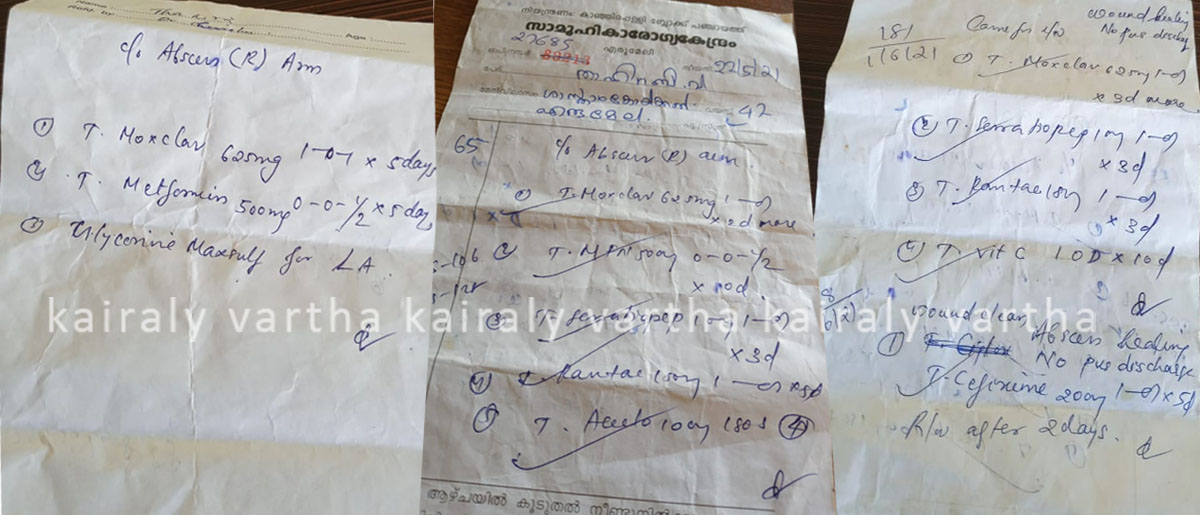 Name :
Age :
c/o Abscess (R) Arm
① T. Moxclav 625mg 1-0-1 x 5days
② T. Metformin 500mg 0-0-1/2 x 5day
③ Glycerine Magsulf for LA
നിയന്ത്രണം: കാഞ്ഞിരപ്പള്ളി ബ്ലോക്ക് പഞ്ചായത്ത്
സാമൂഹികാരോഗ്യകേന്ദ്രം
എരുമേലി
27685
22/5/21
42
എരുമേലി.
65
c/o Abscess (R) arm
① T. Moxclav 625mg 1-0-1
x 2d more
② T. Mfn 500mg 0-0-1/2
x 10d
③ T. Serratiopep 10mg 1-0-1
x 3d
④ T. Rantac 150mg 1-0-1 x 5d
⑤ T. Aceclo 100mg 1 SOS ④
ആഴ്ചയിൽ കൂടുതൽ
181
1/6/21
Came for r/v
wound healing
No pus discharge
① T. Moxclav 625mg 1-0-1
x 3d more
② T. Serratiopep 10mg 1-0-1
x 3d
③ T. Rantac 150mg 1-0-1
x 3d
④ T. Vit C 1 OD x 10d
wound clean
Abscess healing
No pus discharge
① T. Cefixime 200mg 1-0-1 x 5d
R/v after 2 days.
kairaly vartha kairaly vartha kairaly vartha